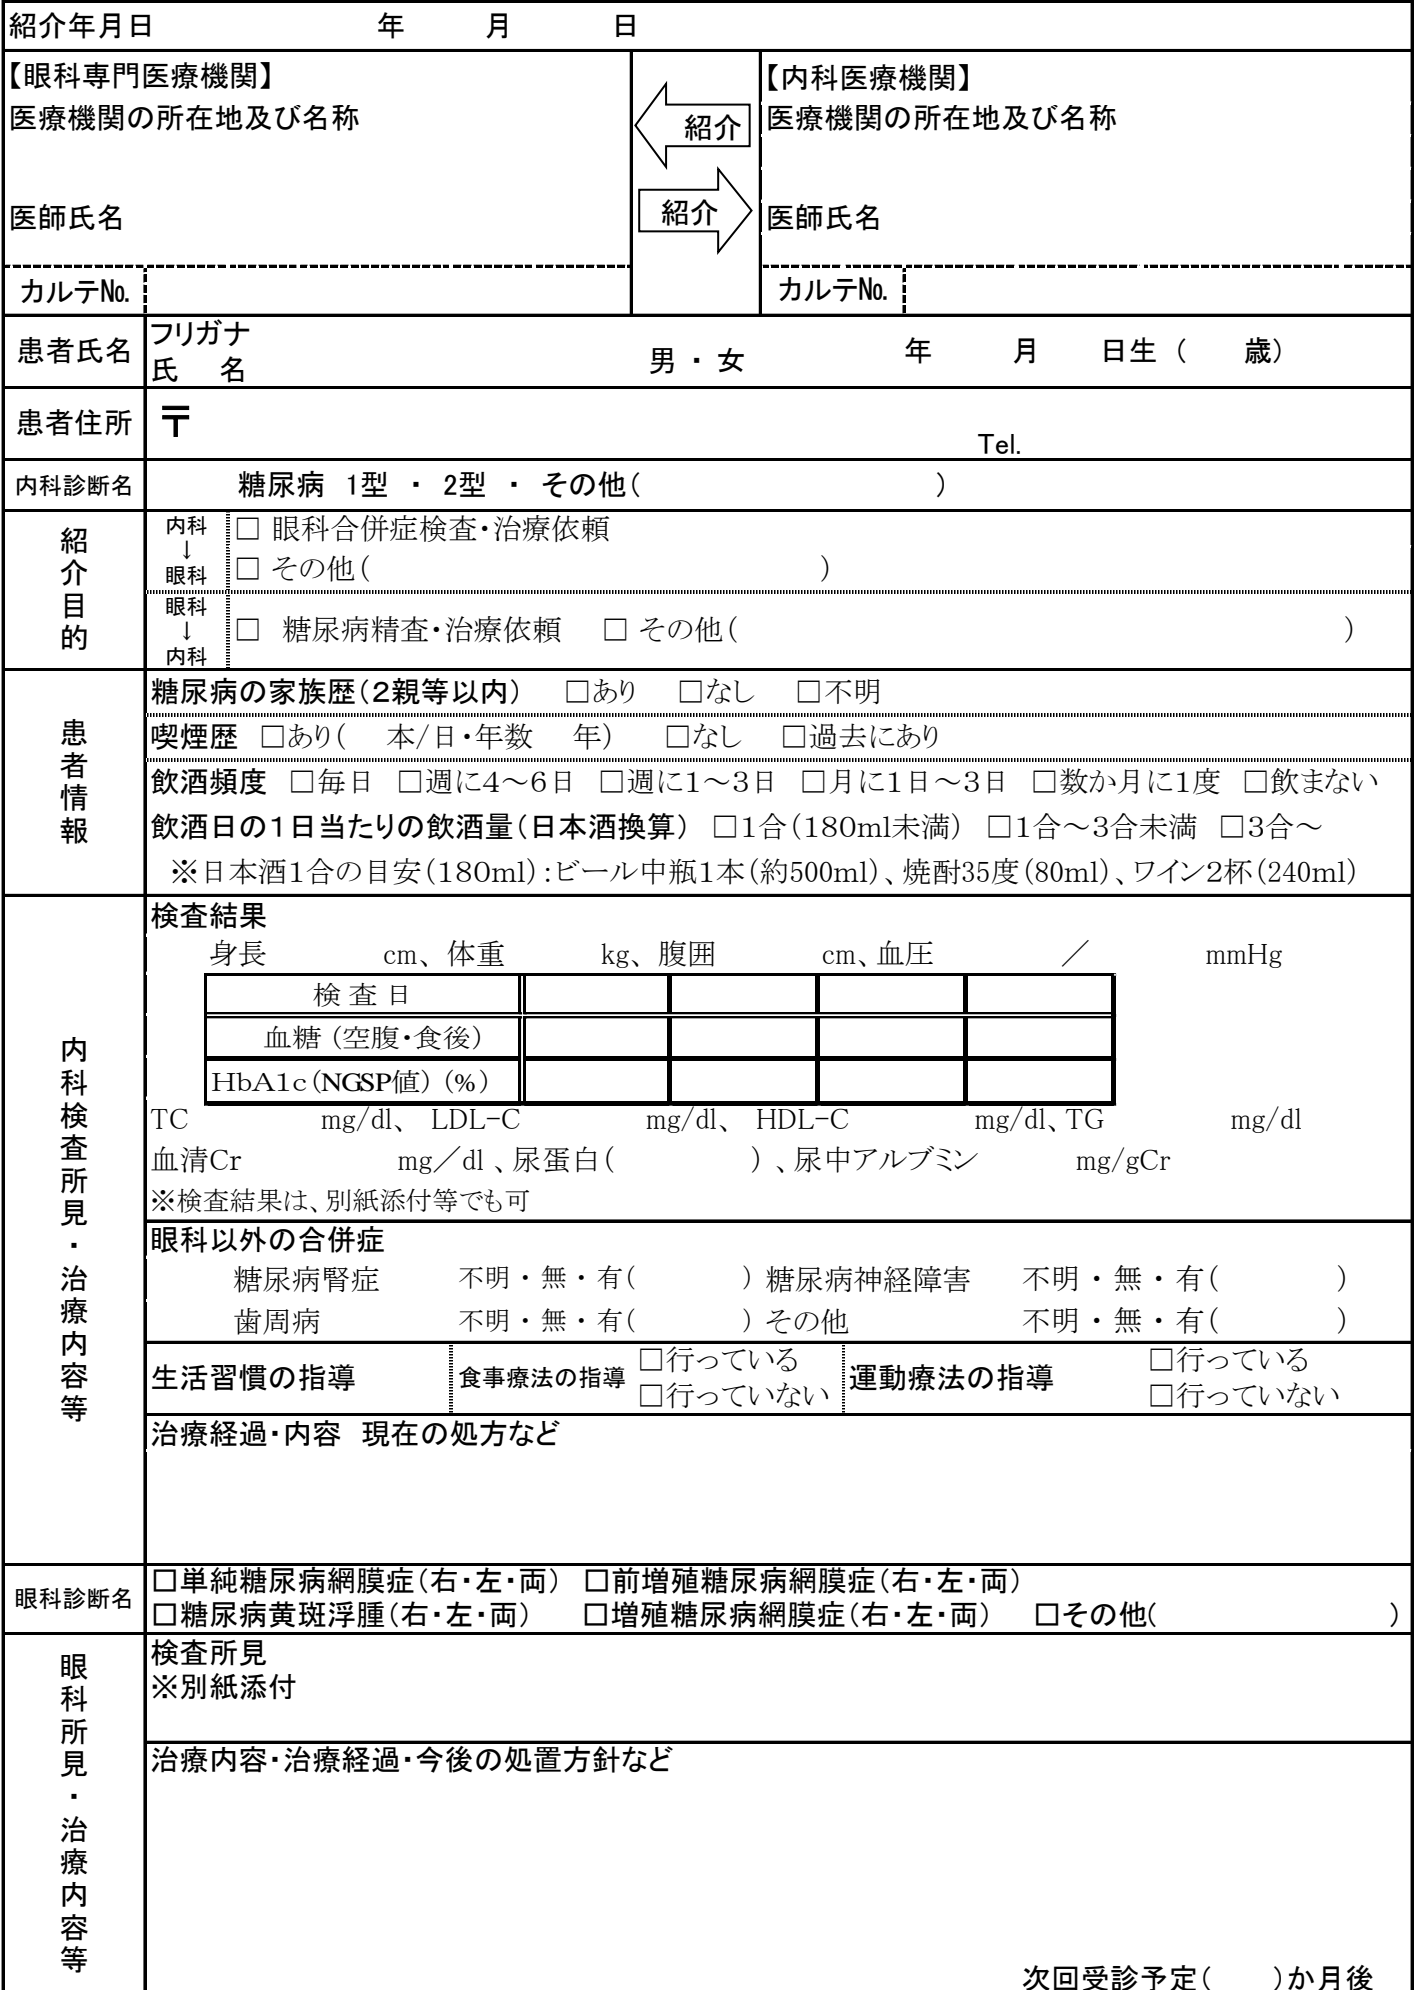 紹介年月日　　　年　　月　　日
【眼科専門医療機関】
医療機関の所在地及び名称
医師氏名
カルテ№
紹介
紹介
【内科医療機関】
医療機関の所在地及び名称
医師氏名
カルテ№
患者氏名
フリガナ
氏　名　　　男・女　　　年　　月　　日生（　　歳）
患者住所　〒
Tel.
内科診断名　糖尿病　1型　・　2型　・　その他（　　　）
紹介目的
内科↓眼科
□ 眼科合併症検査・治療依頼
□ その他（　　　）
眼科↓内科
□ 糖尿病精査・治療依頼　□ その他（　　　）
患者情報
糖尿病の家族歴（２親等以内）　□あり　□なし　□不明
喫煙歴　□あり（　本/日・年数　年）　□なし　□過去にあり
飲酒頻度　□毎日　□週に４～６日　□週に１～３日　□月に１日～３日　□数か月に１度　□飲まない
飲酒日の１日当たりの飲酒量（日本酒換算）　□１合（180ml未満）　□１合～３合未満　□３合～
※日本酒１合の目安（180ml）：ビール中瓶１本（約500ml）、焼酎35度（80ml）、ワイン２杯（240ml）
内科検査所見・治療内容等
検査結果
身長　　　cm、体重　　　kg、腹囲　　　cm、血圧　　　／　　　mmHg
検査日
血糖（空腹・食後）
HbA1c（NGSP値）（%）
TC　　　mg/dl、LDL-C　　　mg/dl、HDL-C　　　mg/dl、TG　　　mg/dl
血清Cr　　　mg／dl、尿蛋白（　　　）、尿中アルブミン　　　mg/gCr
※検査結果は、別紙添付等でも可
眼科以外の合併症
糖尿病腎症　不明・無・有（　　　）糖尿病神経障害　不明・無・有（　　　）
歯周病　不明・無・有（　　　）その他　不明・無・有（　　　）
生活習慣の指導
食事療法の指導
□行っている
□行っていない
運動療法の指導
□行っている
□行っていない
治療経過・内容　現在の処方など
眼科診断名
□単純糖尿病網膜症（右・左・両）　□前増殖糖尿病網膜症（右・左・両）
□糖尿病黄斑浮腫（右・左・両）　□増殖糖尿病網膜症（右・左・両）　□その他（　　　）
眼科所見・治療内容等
検査所見
※別紙添付
治療内容・治療経過・今後の処置方針など
次回受診予定（　　）か月後